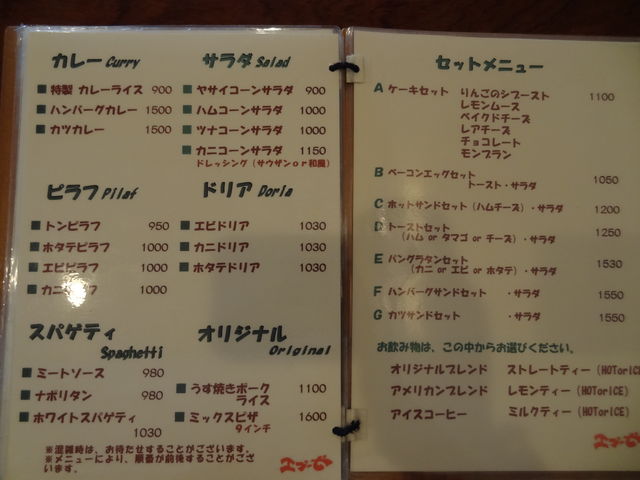 カレー Curry
特製 カレーライス 900
ハンバーグカレー 1500
カツカレー 1500
サラダ Salad
ヤサイコーンサラダ 900
ハムコーンサラダ 1000
ツナコーンサラダ 1000
カニコーンサラダ 1150
ドレッシング(サウザンor和風)
ピラフ Pilaf
トンピラフ 950
ホタテピラフ 1000
エビピラフ 1000
カニ 1000
ドリア Doria
エビドリア 1030
カニドリア 1030
ホタテドリア 1030
スパゲティ
Spaghetti
ミートソース 980
ナポリタン 980
ホワイトスパゲティ
1030
オリジナル
Original
うす焼きポーク
ライス 1100
ミックスピザ 1600
9インチ
※混雑時は、お待たせすることがございます。
※メニューにより、順番が前後することがござ
います。
セットメニュー
A ケーキセット りんごのシブースト 1100
レモンムース
ベイクドチーズ
レアチーズ
チョコレート
モンブラン
B ベーコンエッグセット
トースト・サラダ 1050
C ホットサンドセット(ハムチーズ)・サラダ 1200
D トーストセット
(ハム or タマゴ or チーズ)・サラダ 1250
E パングラタンセット
(カニ or エビ or ホタテ)・サラダ 1530
F ハンバーグサンドセット ・サラダ 1550
G カツサンドセット ・サラダ 1550
お飲み物は、この中からお選びください。
オリジナルブレンド ストレートティー(HOTorICE
アメリカンブレンド レモンティー(HOTorICE)
アイスコーヒー ミルクティー(HOTorICE)